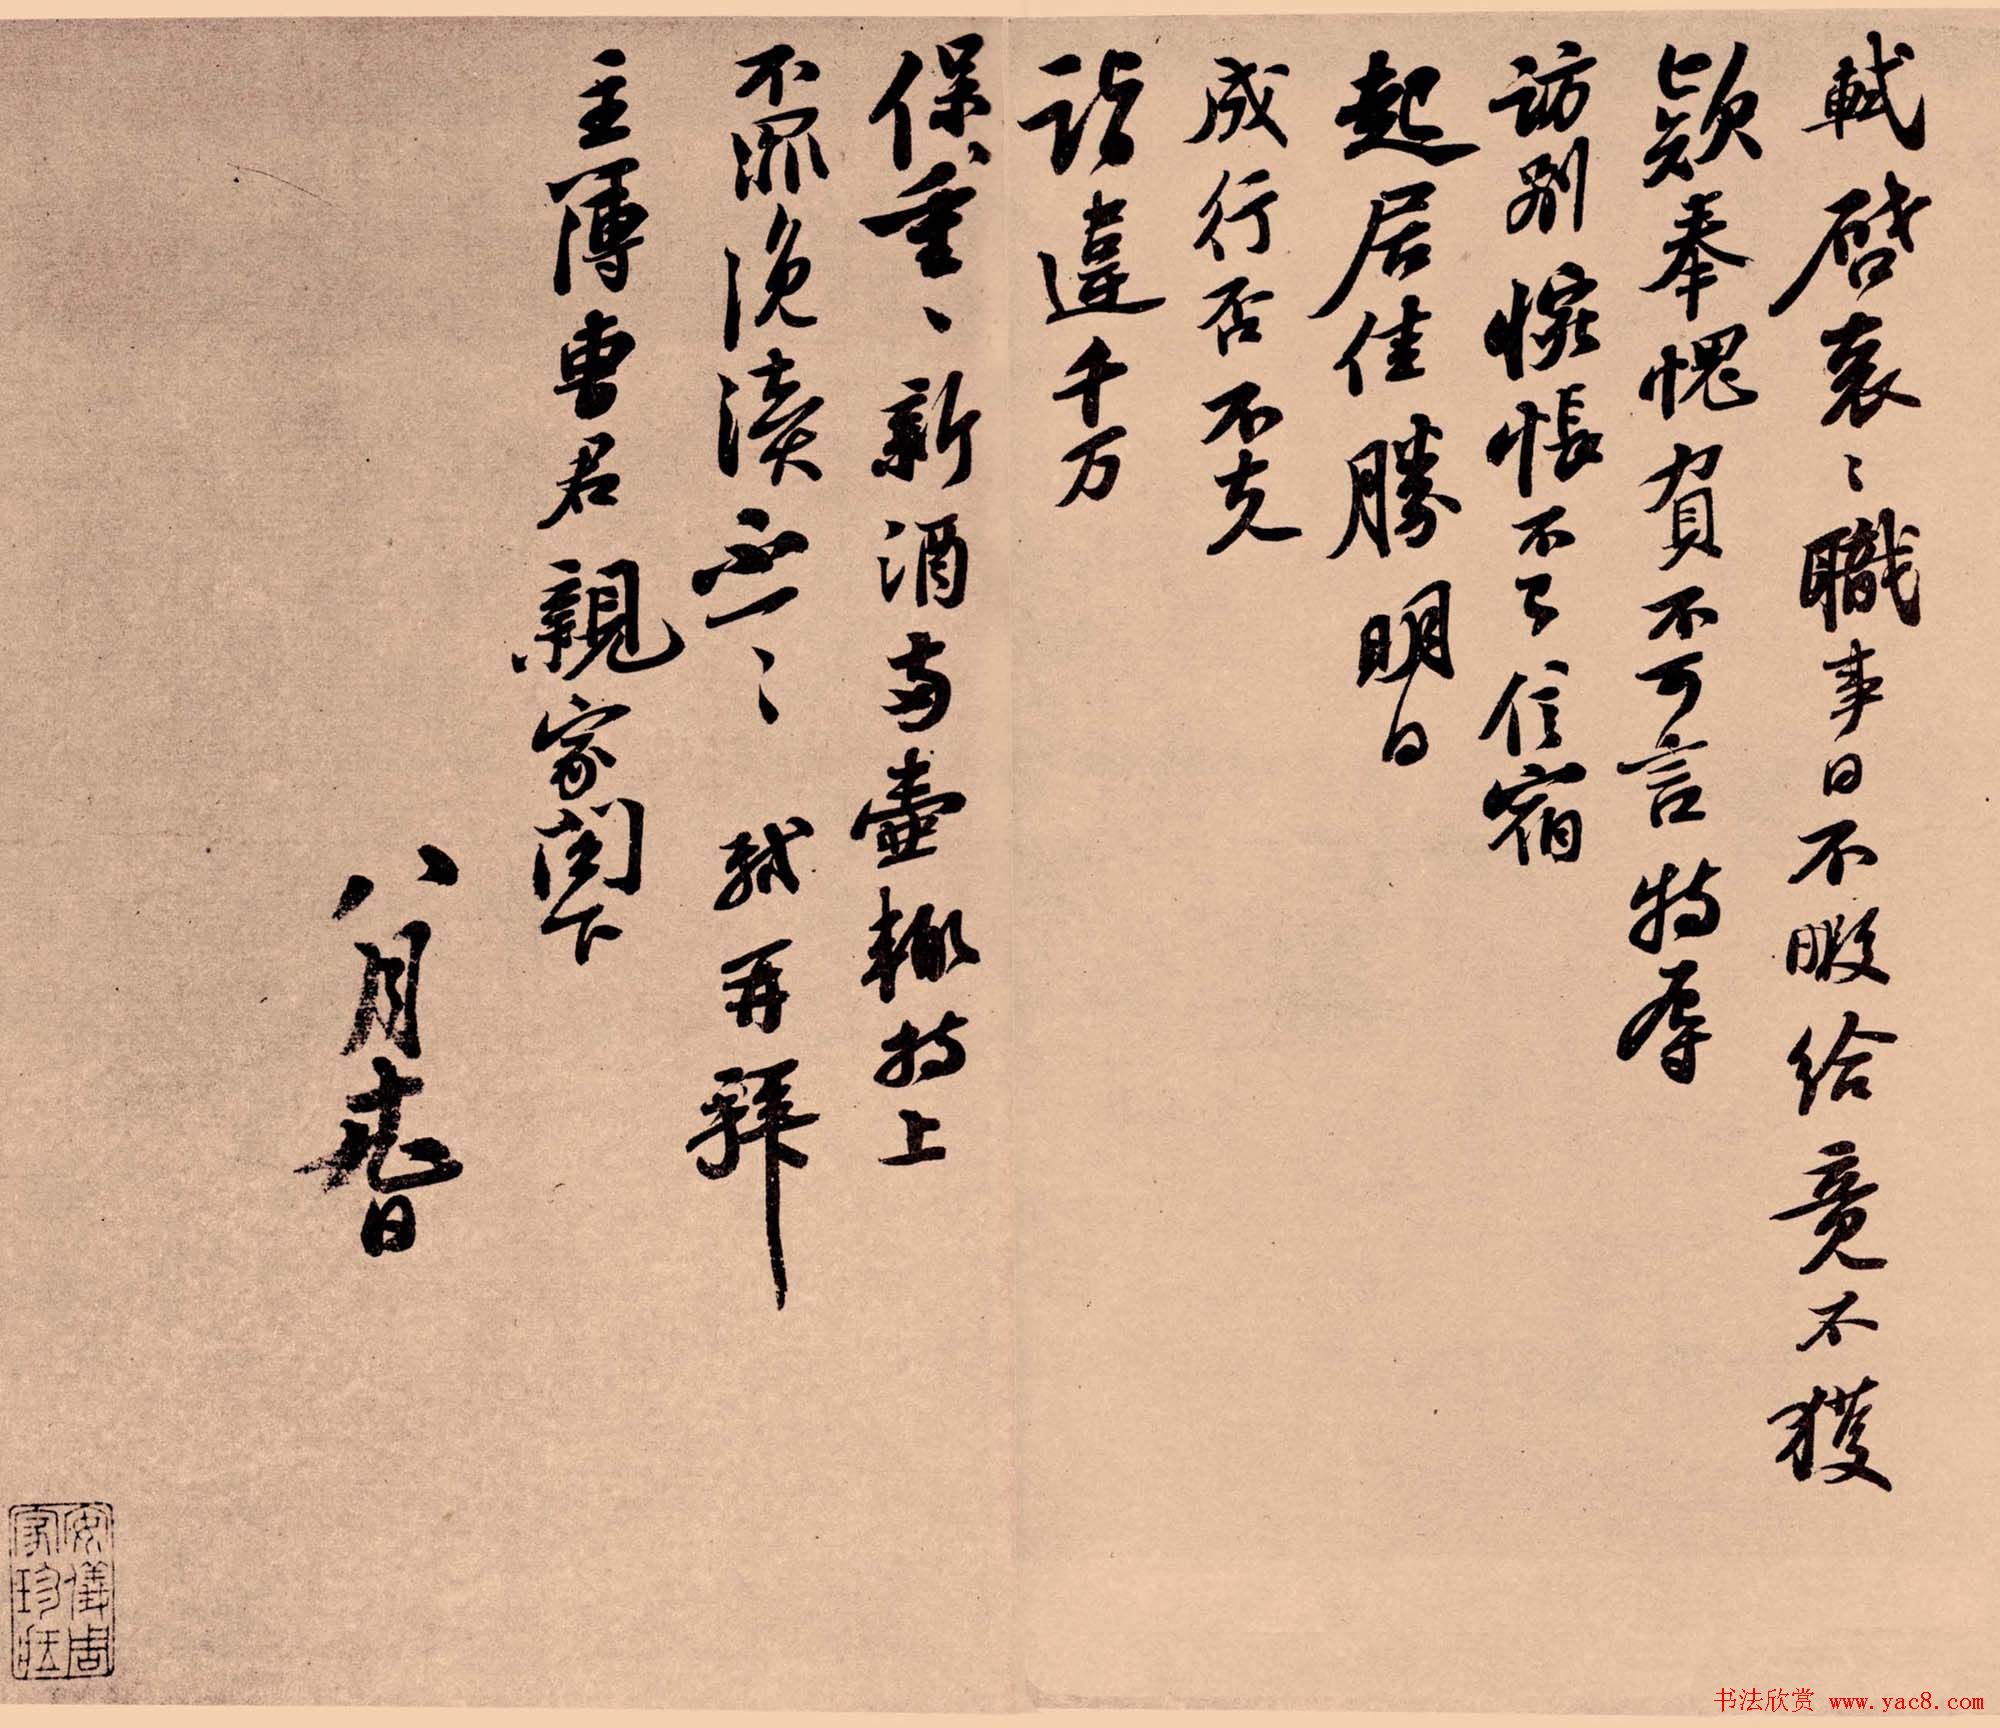 軾啓袞〻職事日不暇給竟不獲
欵奉愧負不可言特辱
訪別惋悵不已信宿
起居佳勝明日
成行否不克
詣違千万
保重〻新酒兩壺輒持上
不罪浼瀆不一〻　軾再拜
主簿曹君親家閣下
八月廿九日
安儀周
家珍藏
书法欣赏 www.yac8.com